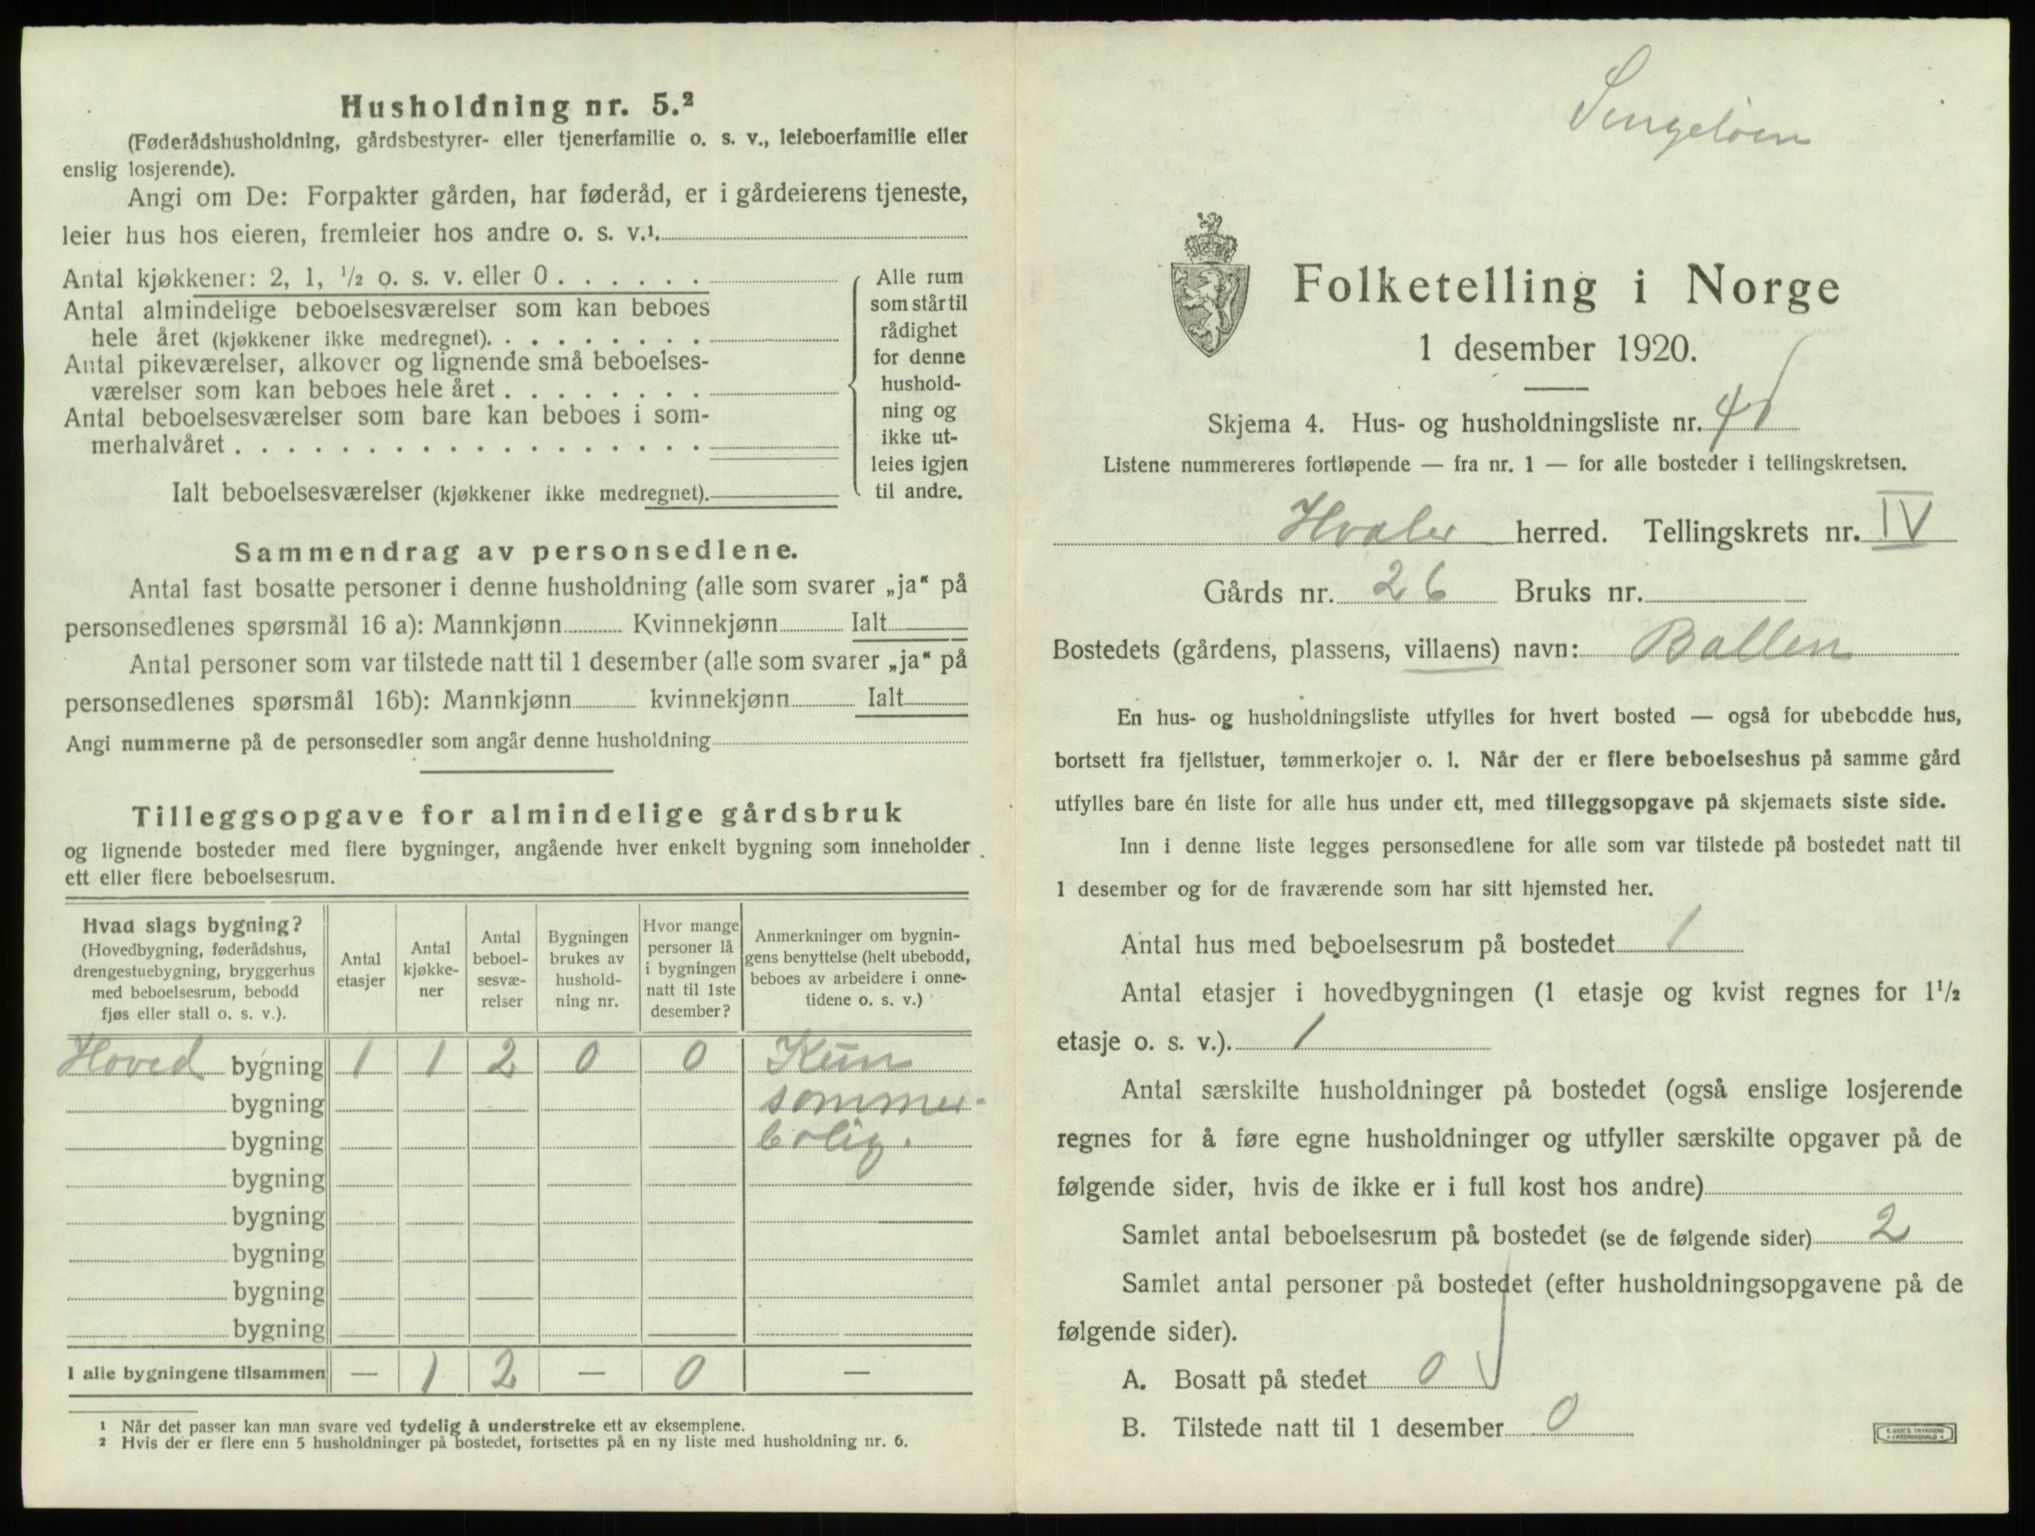 Husholdning nr. 5.²
(Føderådshusholdning, gårdsbestyrer- eller tjenerfamilie o. s. v., leieboerfamilie eller
enslig losjerende).
Angi om De: Forpakter gården, har føderåd, er i gårdeierens tjeneste,
leier hus hos eieren, fremleier hos andre o. s. v.¹
Antal kjøkkener: 2, 1, ½ o. s. v. eller 0 . . . . . .
Antal almindelige beboelsesværelser som kan beboes
hele året (kjøkkener ikke medregnet). . . . . . . . .
Antal pikeværelser, alkover og lignende små beboelses-
værelser som kan beboes hele året . . . . . . . .
Antal beboelsesværelser som bare kan beboes i som-
merhalvåret . . . . . . . . . . . . . . . . . .
Ialt beboelsesværelser (kjøkkener ikke medregnet).
Alle rum
som står til
rådighet
for denne
hushold-
ning og
ikke ut-
leies igjen
til andre.
Sammendrag av personsedlene.
Antal fast bosatte personer i denne husholdning (alle som svarer „ja“ på
personsedlenes spørsmål 16 a): Mannkjønn Kvinnekjønn Ialt
Antal personer som var tilstede natt til 1 desember (alle som svarer „ja“ på
personsedlenes spørsmål 16b): Mannkjønn kvinnekjønn Ialt
Angi nummerne på de personsedler som angår denne husholdning
Tilleggsopgave for almindelige gårdsbruk
og lignende bosteder med flere bygninger, angående hver enkelt bygning som inneholder
ett eller flere beboelsesrum.
Hvad slags bygning?
(Hovedbygning, føderådshus,
drengestuebygning, bryggerhus
med beboelsesrum, bebodd
fjøs eller stall o. s. v.).
Antal
etasjer
Antal
kjøkke-
ner
Antal
beboel-
sesvæ-
relser
Bygningen
brukes av
hushold-
ning nr.
Hvor mange
personer lå
i bygningen
natt til 1ste
desember?
Anmerkninger om bygnin-
gens benyttelse (helt ubebodd,
beboes av arbeidere i onne-
tidene o. s. v.)
Hoved bygning 1 1 2 0 0 Kun
bygning sommer-
bygning bolig.
bygning
bygning
bygning
bygning
bygning
I alle bygningene tilsammen — 1 2 — 0 —
¹ Når det passer kan man svare ved tydelig å understreke ett av eksemplene.
² Hvis der er flere enn 5 husholdninger på bostedet, fortsettes på en ny liste med husholdning nr. 6.
Folketelling i Norge
1 desember 1920.
Skjema 4. Hus- og husholdningsliste nr.
Listene nummereres fortløpende — fra nr. 1 — for alle bosteder i tellingskretsen.
Hvaler herred. Tellingskrets nr. IV
Gårds nr. 26 Bruks nr.
Bostedets (gårdens, plassens, villaens) navn: Ballen
En hus- og husholdningsliste utfylles for hvert bosted — også for ubebodde hus,
bortsett fra fjellstuer, tømmerkojer o. l. Når der er flere beboelseshus på samme gård
utfylles bare én liste for alle hus under ett, med tilleggsopgave på skjemaets siste side.
Inn i denne liste legges personsedlene for alle som var tilstede på bostedet natt til
1 desember og for de fraværende som har sitt hjemsted her.
Antal hus med beboelsesrum på bostedet 1
Antal etasjer i hovedbygningen (1 etasje og kvist regnes for 1½
etasje o. s. v.). 1
Antal særskilte husholdninger på bostedet (også enslige losjerende
regnes for å føre egne husholdninger og utfyller særskilte opgaver på de
følgende sider, hvis de ikke er i full kost hos andre)
Samlet antal beboelsesrum på bostedet (se de følgende sider) 2
Samlet antal personer på bostedet (efter husholdningsopgavene på de
følgende sider).
A. Bosatt på stedet 0
B. Tilstede natt til 1 desember 0